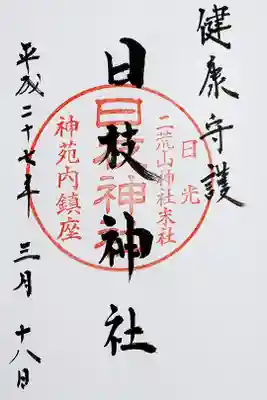 健康守護
日枝神社
日光
二荒山神社末社
日枝神社
神苑内鎮座
平成二十七年三月十八日